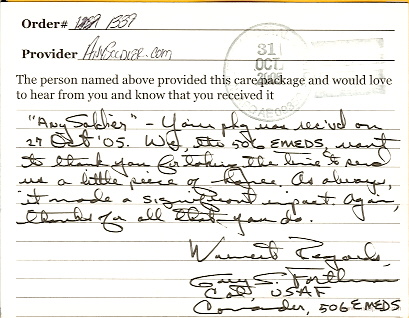 Order# 1337
Provider AnySoldier.com
31
OCT
The person named above provided this care package and would love
to hear from you and know that you received it
"Any Soldier" - Your pkg was rec'vd on
27 Oct '05. We, the 506 EMEDS, want
to thank you for taking the time to send
us a little piece of home. As always,
it made a significant impact. Again,
thanks for all that you do.
Warmest Regards,
Gary S.
Col USAF
Commander, 506 EMEDS